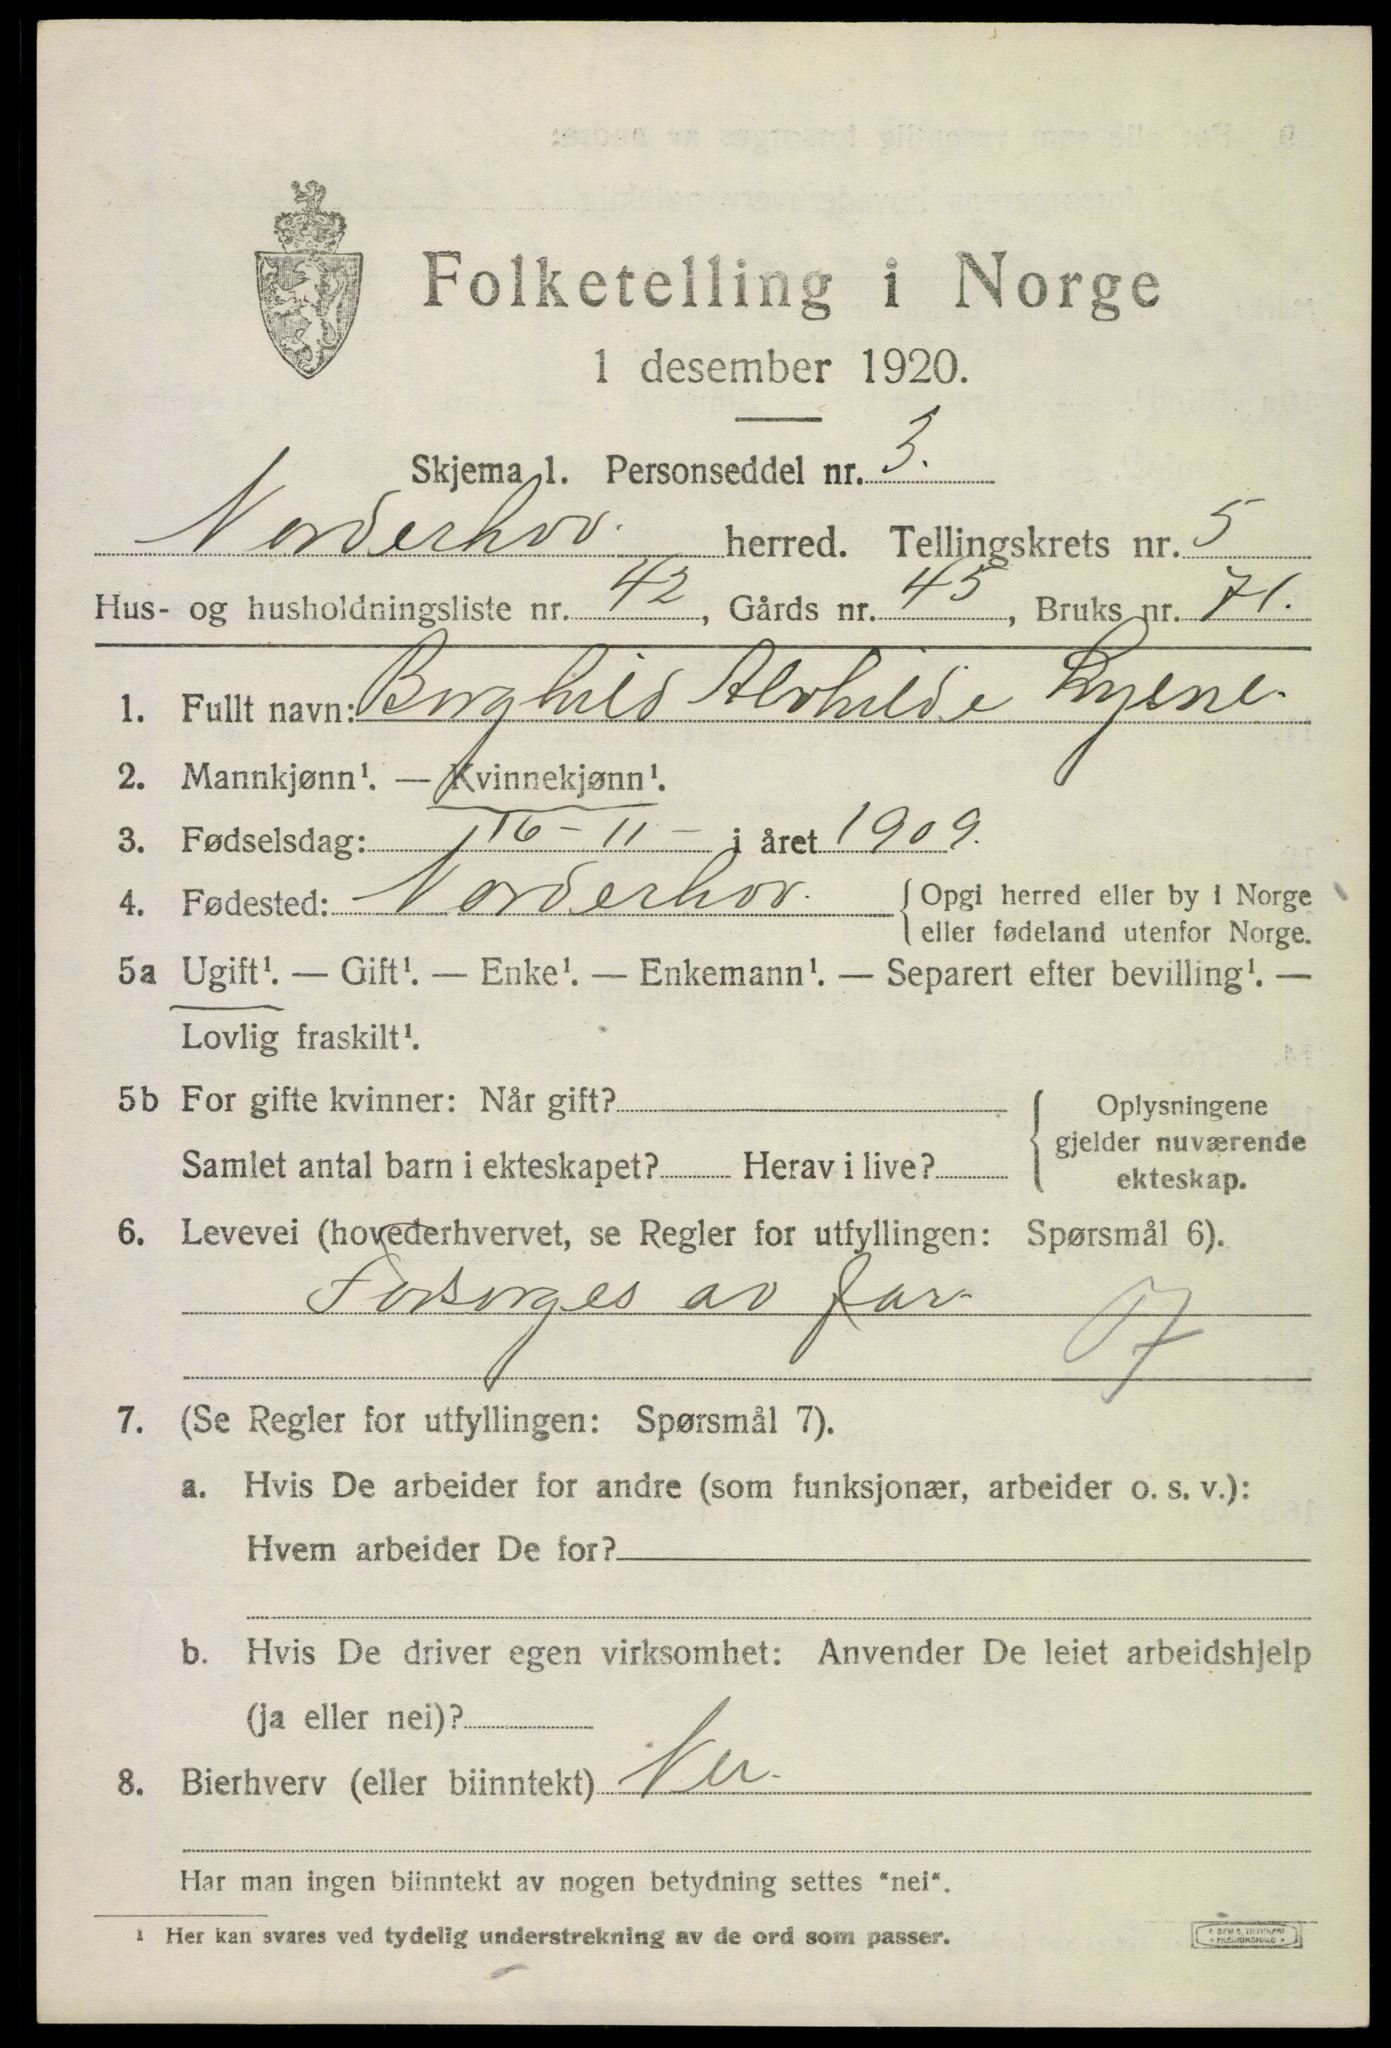 Folketelling i Norge
1 desember 1920.
Skjema 1. Personseddel nr. 3.
Norderhov. herred. Tellingskrets nr. 5
Hus- og husholdningsliste nr. 42, Gårds nr. 45, Bruks nr. 71.
1. Fullt navn: Borghild Alvhilde
2. Mannkjønn¹. — Kvinnekjønn¹.
3. Fødselsdag: 16 - 11 - i året 1909.
4. Fødested: Norderhov. { Opgi herred eller by i Norge
eller fødeland utenfor Norge.
5a Ugift¹. — Gift¹. — Enke¹. — Enkemann¹. — Separert efter bevilling¹. —
Lovlig fraskilt¹.
5b For gifte kvinner: Når gift?
Samlet antal barn i ekteskapet? Herav i live?
{ Oplysningene
gjelder nuværende
ekteskap.
6. Levevei (hovederhvervet, se Regler for utfyllingen: Spørsmål 6).
Forsorges av far.
7
7. (Se Regler for utfyllingen: Spørsmål 7).
a. Hvis De arbeider for andre (som funksjonær, arbeider o. s. v.):
Hvem arbeider De for?
b. Hvis De driver egen virksomhet: Anvender De leiet arbeidshjelp
(ja eller nei)?
8. Bierhverv (eller biinntekt) Nei.
Har man ingen biinntekt av nogen betydning settes "nei".
¹ Her kan svares ved tydelig understrekning av de ord som passer.